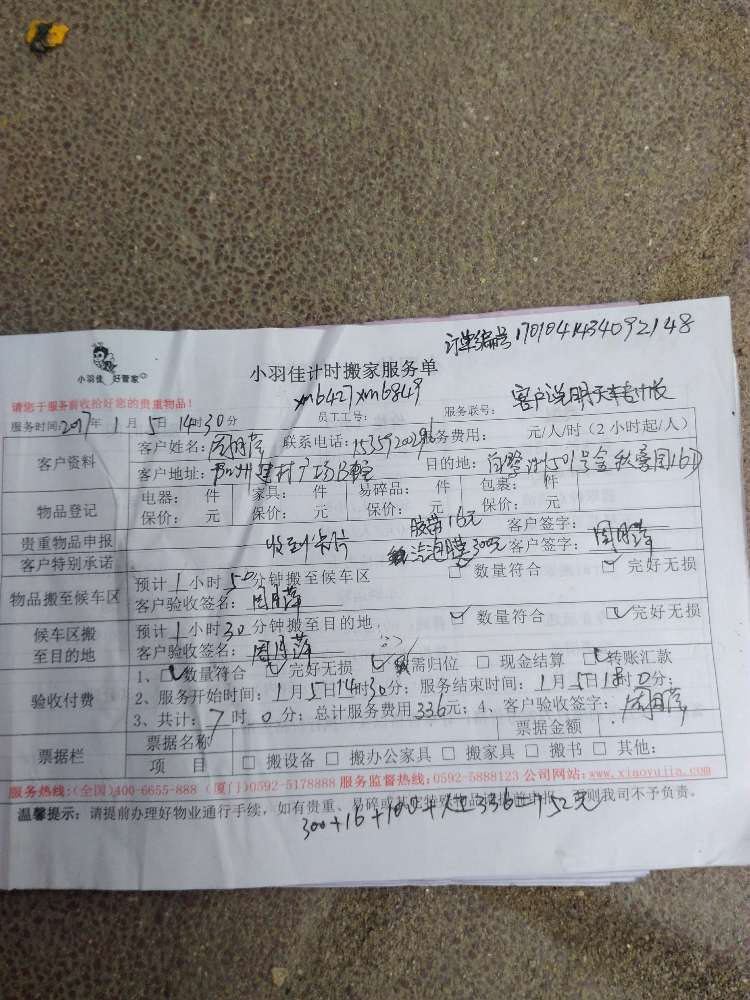 订单编号1701041434092148
小羽佳 好管家
小羽佳计时搬家服务单
xm6427 xm6849
请您于服务前收拾好您的贵重物品!
员工工号: 服务联号: 客户说明天车
服务时间:2017年1月5日14时30分
客户资料 客户姓名:周月萍 联系电话: 服务费用: 元/人/时(2小时起/人)
客户地址: 建材广场 目的地: 501号金秋豪园
物品登记 电器: 件 家具: 件 易碎品: 件 包裹: 件
保价: 元 保价: 元 保价: 元 保价: 元
胶带16元 客户签字:
贵重物品申报 收到卡片
客户特别承诺 汽泡膜300元 客户签字:周月萍
物品搬至候车区 预计1小时50分钟搬至候车区 □ 数量符合 □ 完好无损
客户验收签名:周月萍
候车区搬至目的地 预计1小时30分钟搬至目的地 □ 数量符合 □ 完好无损
客户验收签名:周月萍
验收付费 1、□ 数量符合 □ 完好无损 □ 需归位 □ 现金结算 □ 转账汇款
2、服务开始时间:1月5日14时30分;服务结束时间:1月5日18时0分;
3、共计:7时0分;总计服务费用336元;4、客户验收签字:周月萍
票据栏 票据名称 票据金额
项 目 □ 搬设备 □ 搬办公家具 □ 搬家具 □ 搬书 □ 其他:
服务热线:(全国)400-6655-888 (厦门)0592-5178888 服务监督热线:0592-5888123 公司网站:www.xiaoyujia.com
温馨提示:请提前办理好物业通行手续,如有贵重、易碎或其它特殊物品 则我司不予负责。
300+16+100+人工336=752元